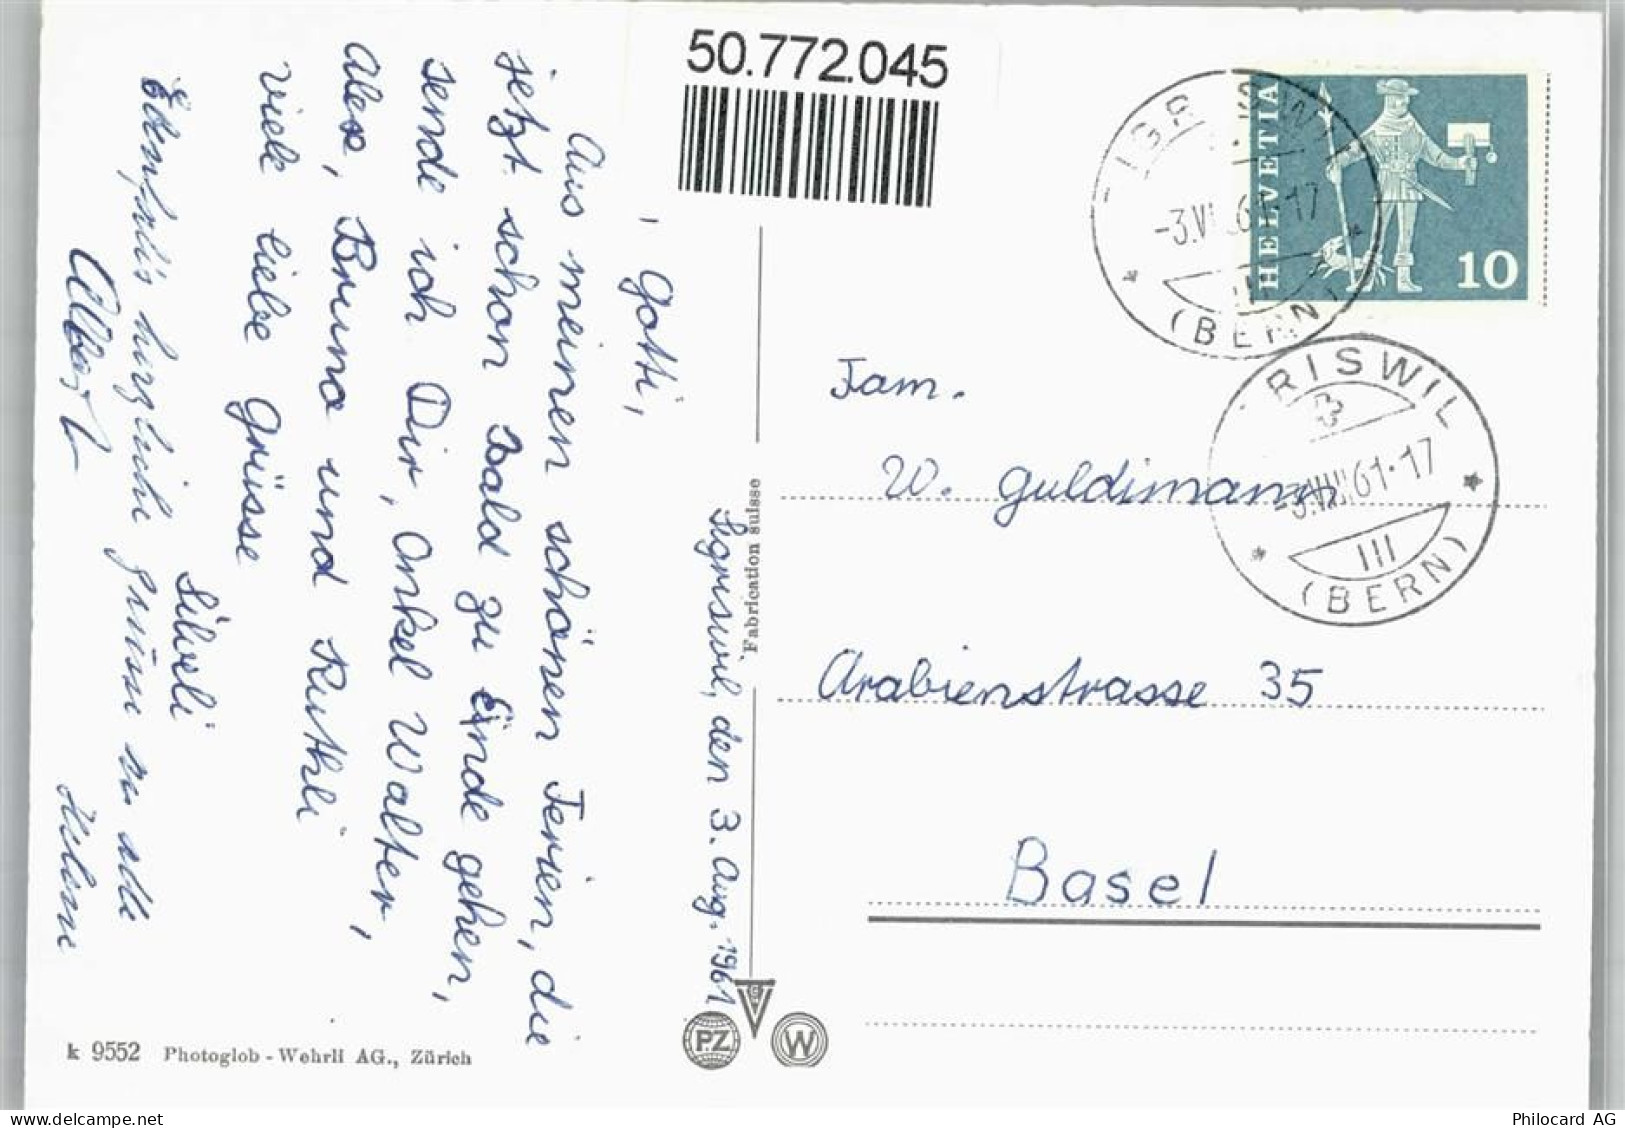 50.772.045
Sigriswil, den 3. Aug. 1961
, Gotti,
Aus meinen schönen Ferien, die
jetzt schon bald zu Ende gehen,
sende ich Dir, Onkel Walter,
Alex, Bruno und Ruthli
viele liebe Grüsse
Silveli
Ebenfalls herzliche
Albert
HELVETIA
10
(BERN)
RISWIL
-3.VIII.61-17
III
(BERN)
Fam.
W. Guldimann
Arabienstrasse 35
Basel
Fabrication suisse
PZ
W
k 9552 Photoglob - Wehrli AG., Zürich
Philocard AG